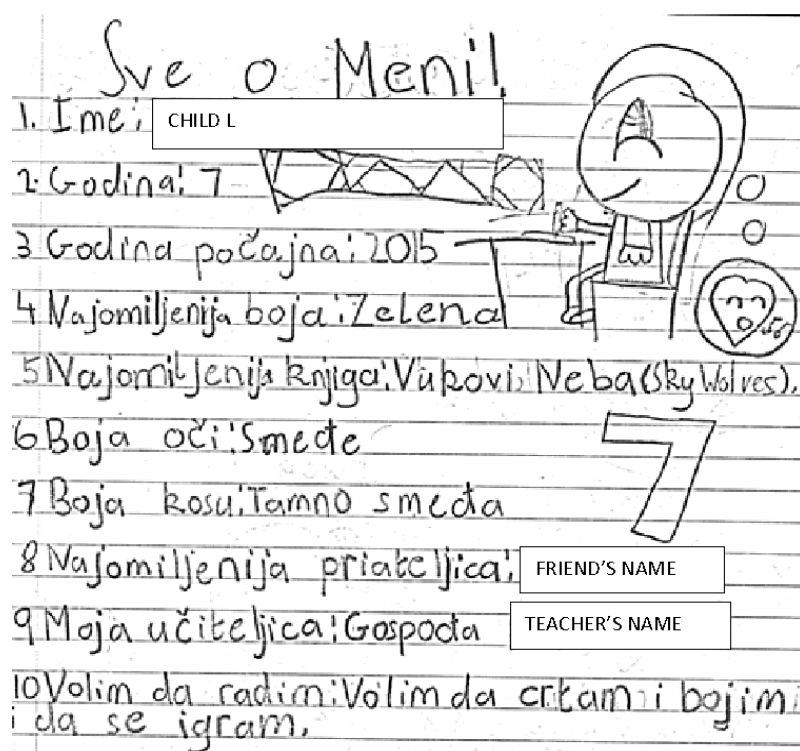 Sve o Meni!
1. Ime: CHILD L
2. Godina: 7
3 Godina počajna: 2015
4 Najomiljenija boja: Zelena
5 Najomiljenija knjiga: Vukovi Neba (Sky Wolves).
6 Boja oči: Smeđe
7 Boja kosu: Tamno smeđa
7
8 Najomiljenija priateljica: FRIEND'S NAME
9 Moja učiteljica: Gospođa TEACHER'S NAME
10 Volim da radim: Volim da crtam i bojim
i da se igram.